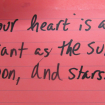 our heart is a
iant as the su
oon, and stars